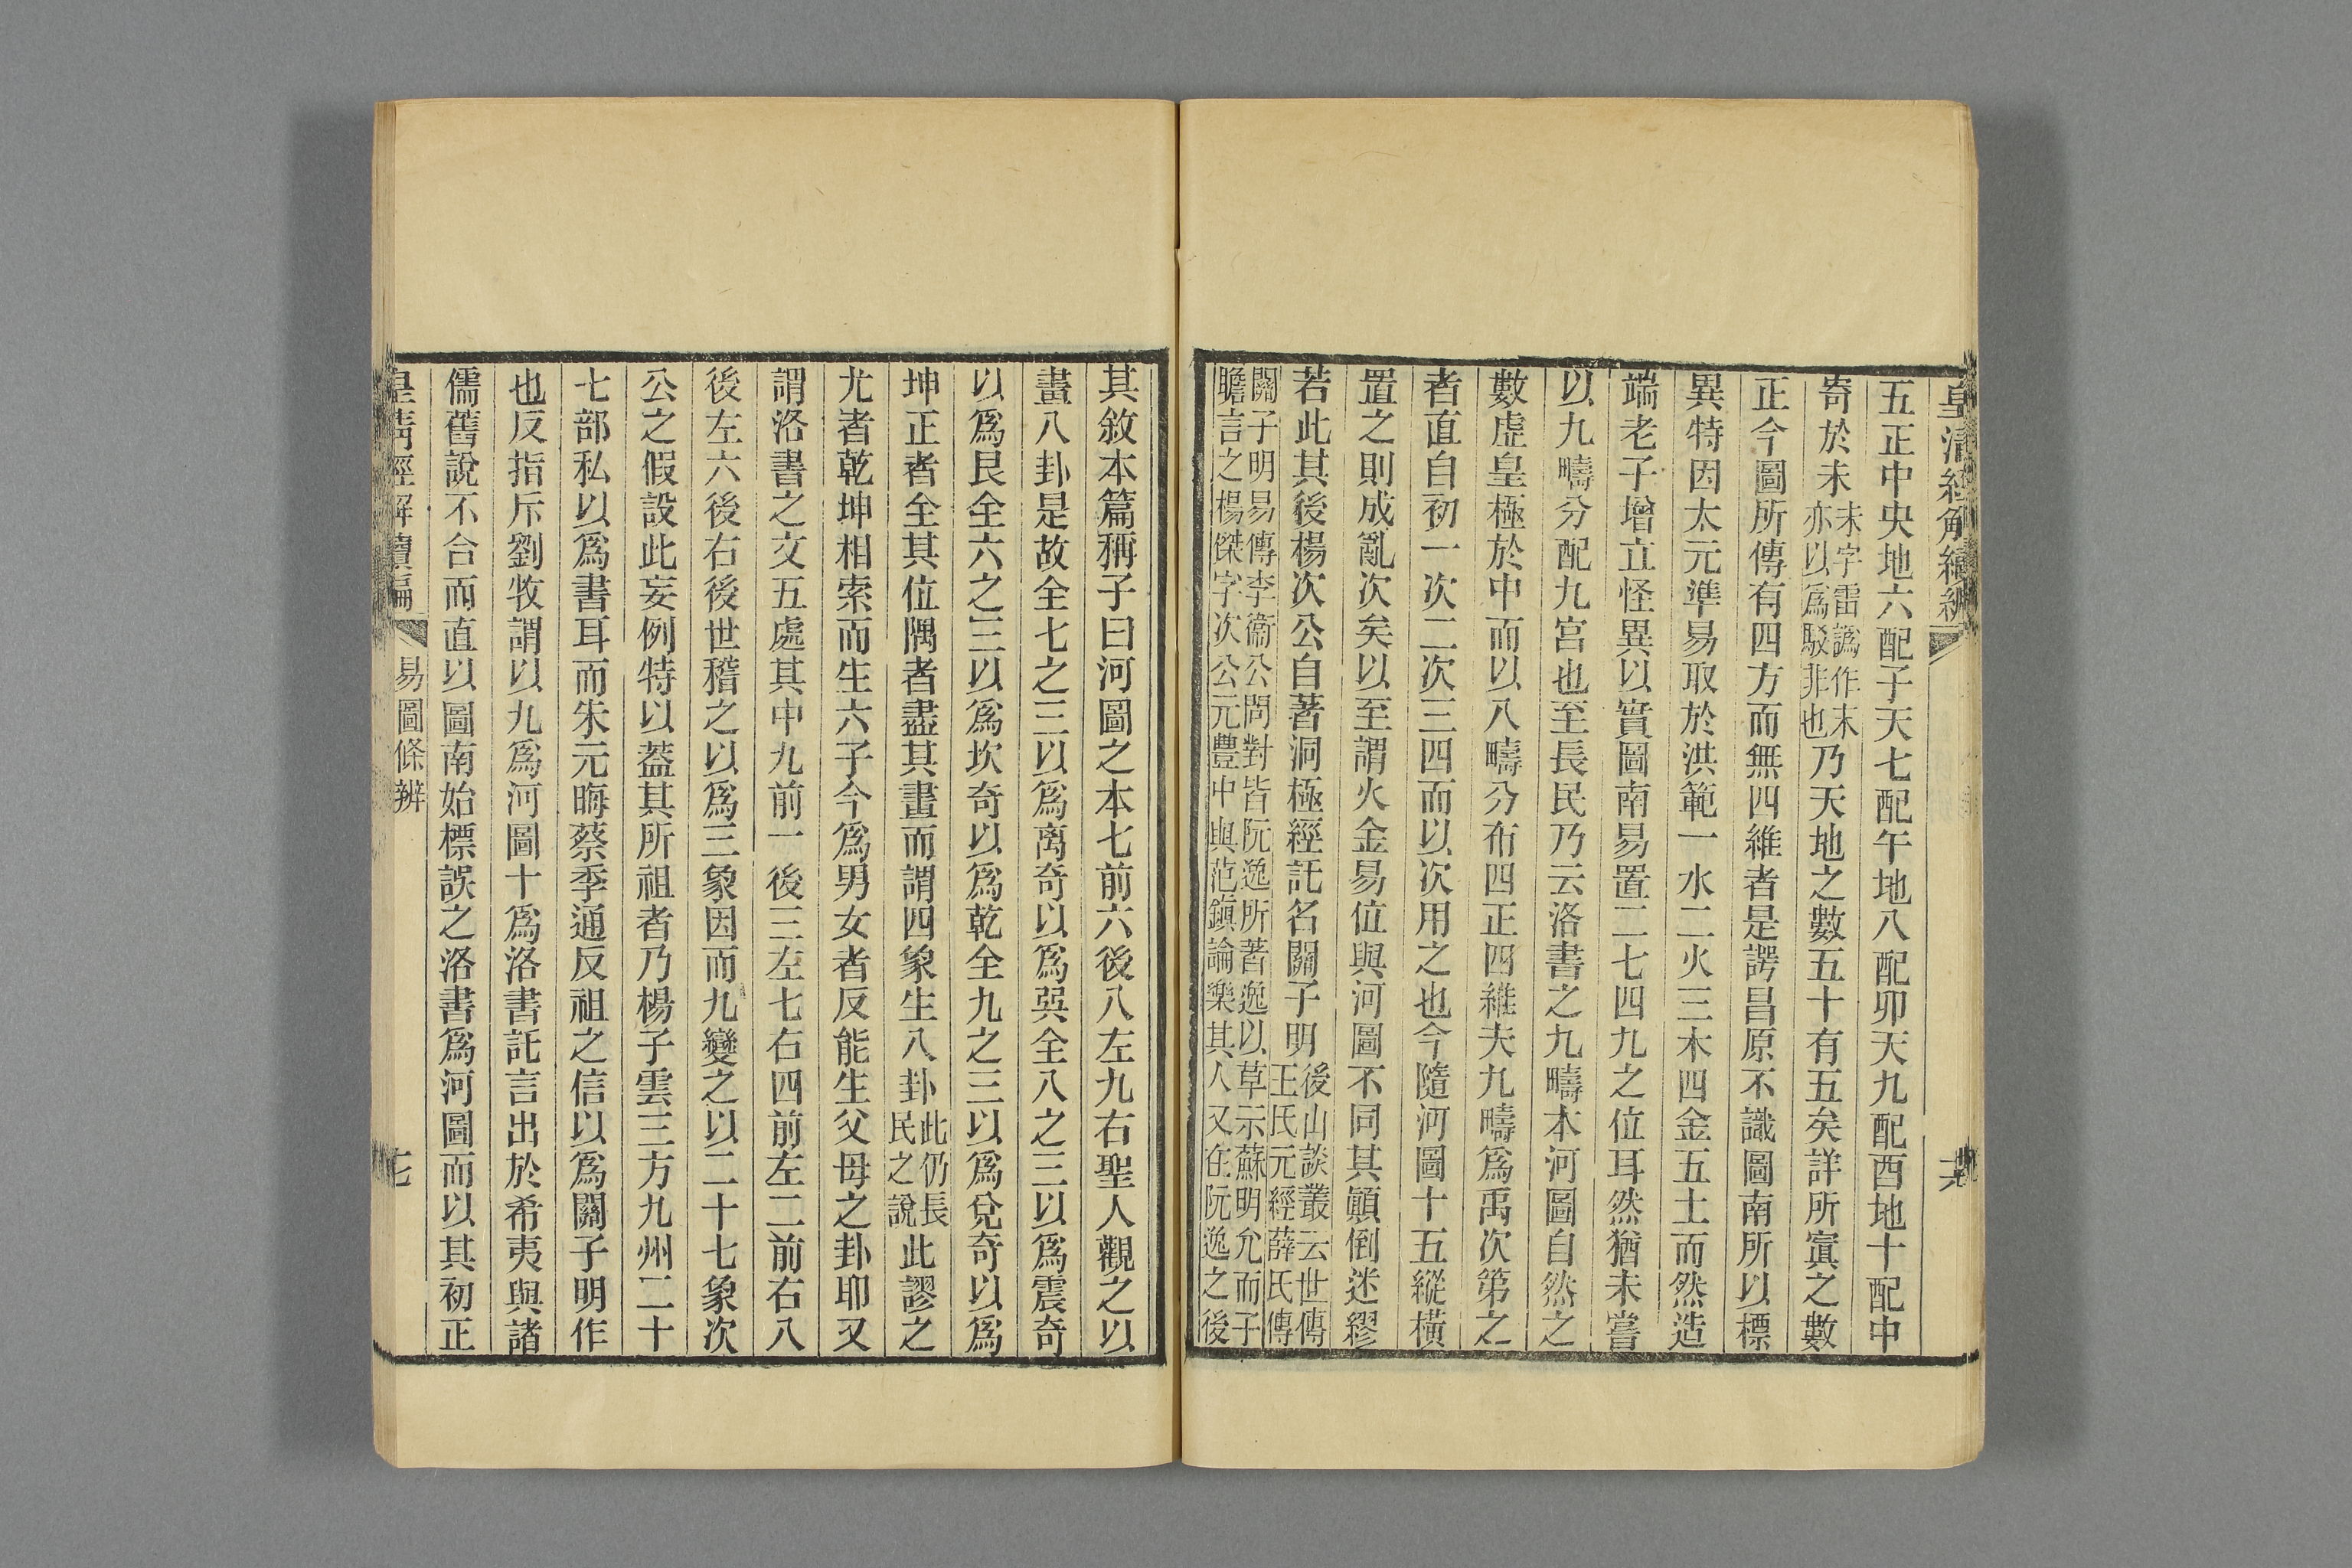 皇清經解續編
五正中央地六配子天七配午地八配卯天九配酉地十配中
寄於未未字雷譌作末亦以爲駁非也乃天地之數五十有五矣詳所寘之數
正今圖所傳有四方而無四維者是諤昌原不識圖南所以標
異特因太元準易取於洪範一水二火三木四金五土而然造
端老子增立怪異以實圖南易置二七四九之位耳然猶未嘗
以九疇分配九宮也至長民乃云洛書之九疇本河圖自然之
數虛皇極於中而以八疇分布四正四維夫九疇爲禹次第之
者直自初一次二次三四而以次用之也今隨河圖十五縱橫
置之則成亂次矣以至謂火金易位與河圖不同其顚倒迷繆
若此其後楊次公自著洞極經託名關子明後山談叢云世傳王氏元經薛氏傳
關子明易傳李衞公問對皆阮逸所著逸以草示蘇明允而子
瞻言之楊傑字次公元豐中與范鎭論樂其人又在阮逸之後
其敘本篇稱子曰河圖之本七前六後八左九右聖人觀之以
畫八卦是故全七之三以爲离奇以爲巽全八之三以爲震奇
以爲艮全六之三以爲坎奇以爲乾全九之三以爲兌奇以爲
坤正者全其位隅者盡其畫而謂四象生八卦此仍長民之說此謬之
尤者乾坤相索而生六子今爲男女者反能生父母之卦耶又
謂洛書之文五處其中九前一後三左七右四前左二前右八
後左六後右後世稽之以爲三象因而九變之以二十七象次
公之假設此妄例特以蓋其所祖者乃楊子雲三方九州二十
七部私以爲書耳而朱元晦蔡季通反祖之信以爲關子明作
也反指斥劉牧謂以九爲河圖十爲洛書託言出於希夷與諸
儒舊說不合而直以圖南始標誤之洛書爲河圖而以其初正
皇清經解續編
易圖條辨